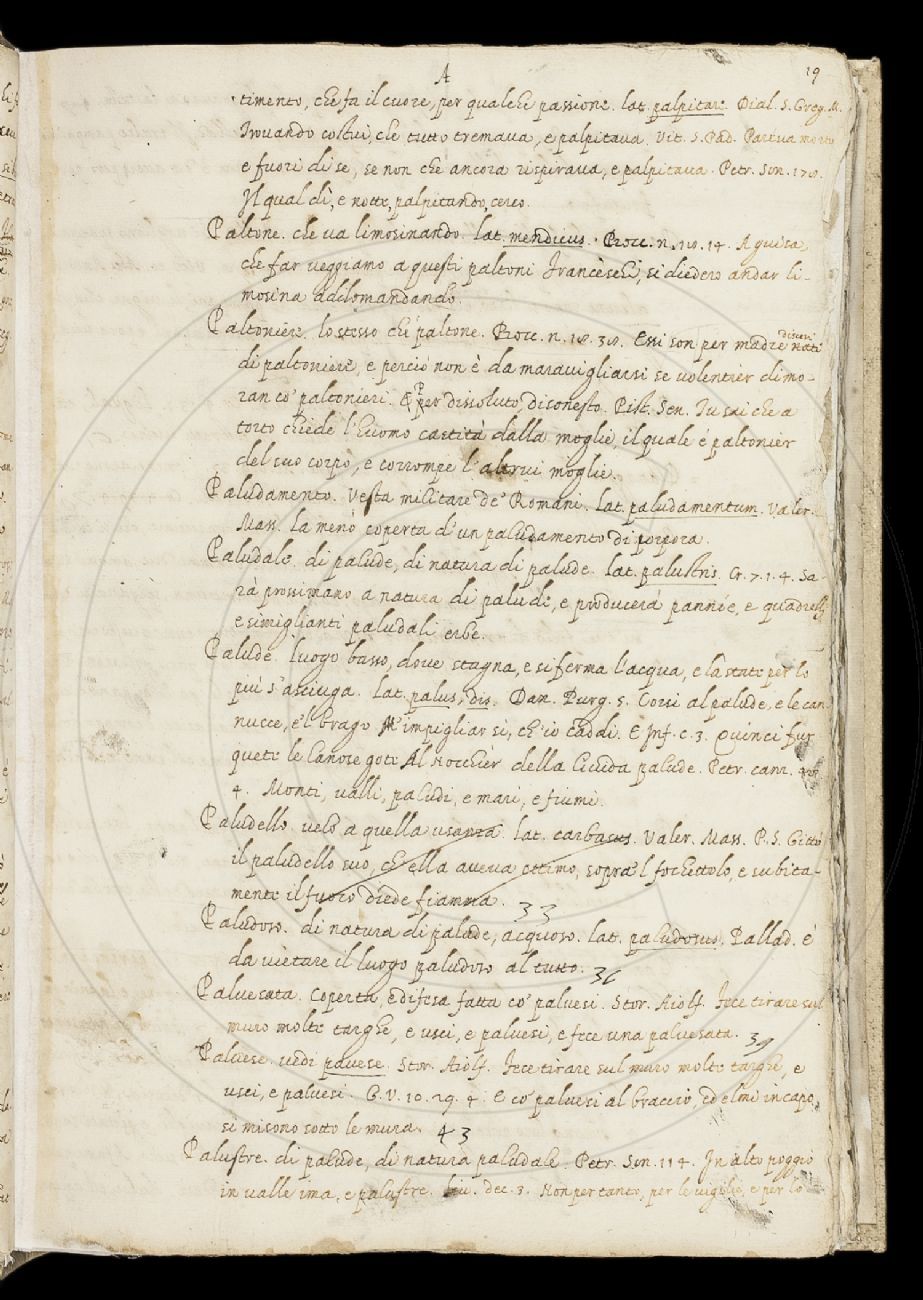 A
19
timento, che fa il cuore, per qualche passione. lat. palpitare. Dial. S. Greg. M.
Trovando costui, che tutto tremava, e palpitava. Vit. S. Pad. Pareva morto
e fuori di se, se non che ancora respirava, e palpitava. Petr. Son.
Il qual dì, e notte, palpitando, cerco.
Paltone. che va limosinando. lat. mendicus. Bocc. n. 18. 14. A guisa,
che far veggiamo a questi paltoni Franceschi, si diedero andar li-
mosina addomandando.
Paltoniere. lo stesso che paltone. Bocc. n. 18. 38. Essi son per madre discesi
di paltoniere, e perciò non è da maravigliarsi se volentier dimo-
ran co' paltonieri. E per dissoluto, disonesto. Pist. Sen. Tu sai che a
torto chiede l'huomo castità dalla moglie, il quale è paltonier
del suo corpo, e corrompe l'altrui moglie.
Paludamento. Vesta militare de' Romani. lat. paludamentum. Valer.
Mass. La menò coperta d'un paludamento di porpora.
Paludale. di palude, di natura di palude. lat. palustris. Cr. 7. 1. 4. Sa-
rà prossimano a natura di palude, e producerà pannie, e quadrelli
e simiglianti paludali erbe.
Palude. luogo basso, dove stagna, e si ferma l'acqua, e la state per lo
più s'asciuga. lat. palus, dis. Dan. Purg. 5. Corsi al palude, e le can-
nucce, e 'l brago M'impigliar sì, ch'io caddi. E Inf. c. 3. Quinci fur
quete le lanose gote Al nocchier della livida palude. Petr. canz.
4. Monti, valli, paludi, e mari, e fiumi.
Paludello. velo a quella usanza. lat. carbasus. Valer. Mass. P. S. Gittò
il paludello suo, ch'ella aveva ottimo, sopra 'l fochettolo, e subita-
mente il fuoco diede fiamma. 33
Paludoso. di natura di palude, acquoso. lat. paludosus. Pallad. è
da vietare il luogo paludoso al tutto. 36
Palvesata. Coperta, e difesa fatta co' palvesi. Stor. Aiolf. Fece tirare sul
muro molte targhe, e usci, e palvesi, e fece una palvesata. 39
Palvese. vedi pavese. Stor. Aiolf. Fece tirare sul muro molte targhe, e
usci, e palvesi. G. V. 10. 29. 4. E co' palvesi al braccio, ed elmi in capo,
si misono sotto le mura. 43
Palustre. di palude, di natura paludale. Petr. Son. 114. In alto poggio
in valle ima, e palustre. Liv. dec. 3. Non per tanto, per le vigilie, e per lo